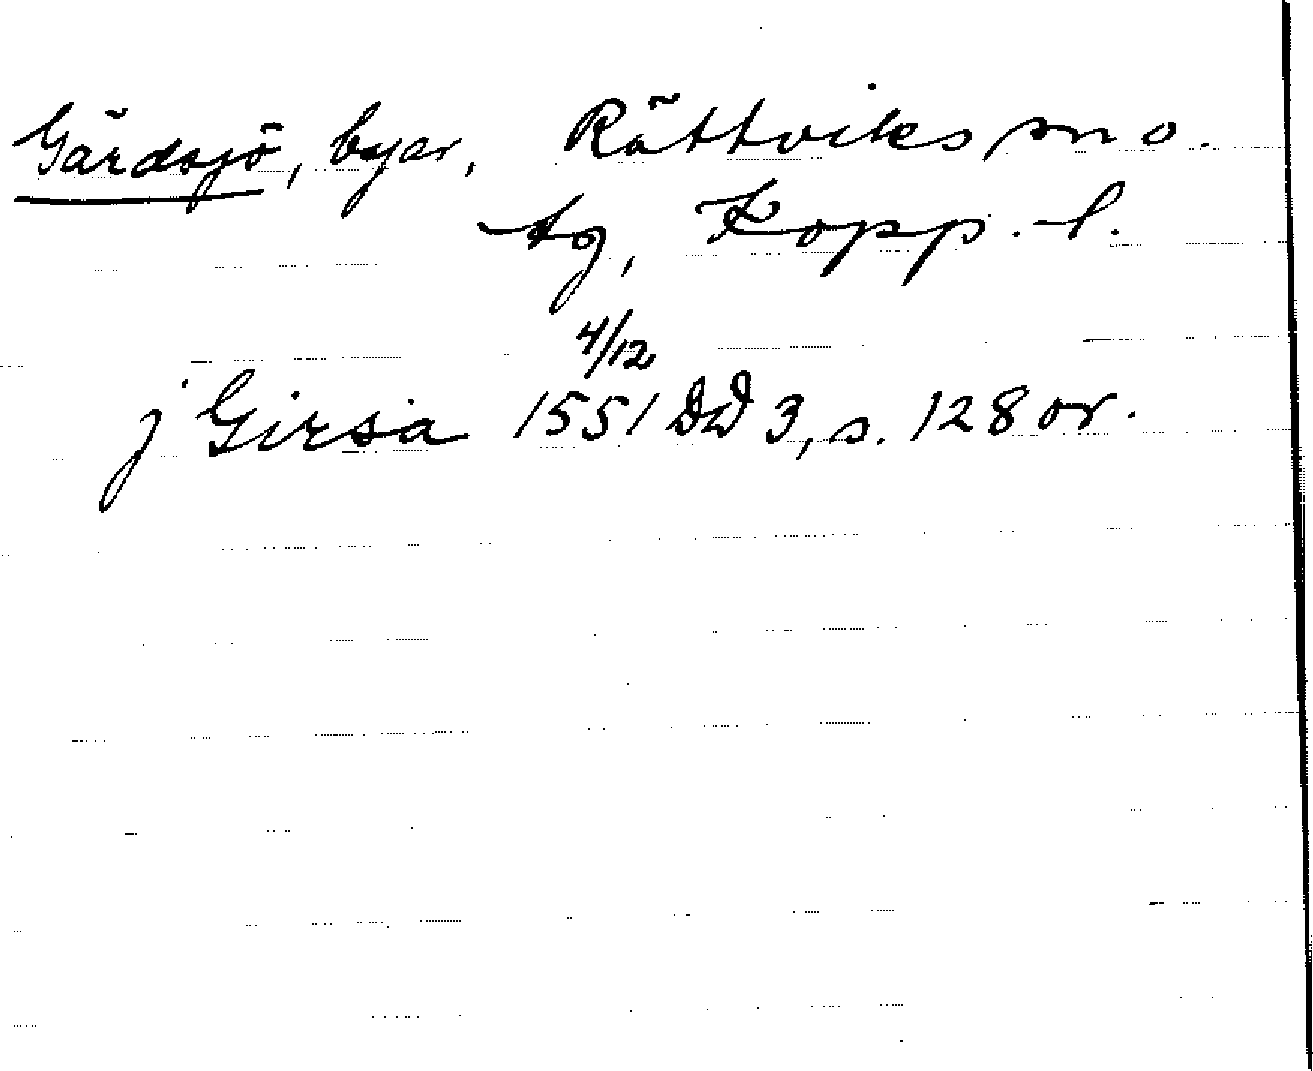 Gärdsjö, byar, Rättviks sn o.
tg, Kopp. l.
4/12
j Girsia 1551 DD 3, s. 128 or.